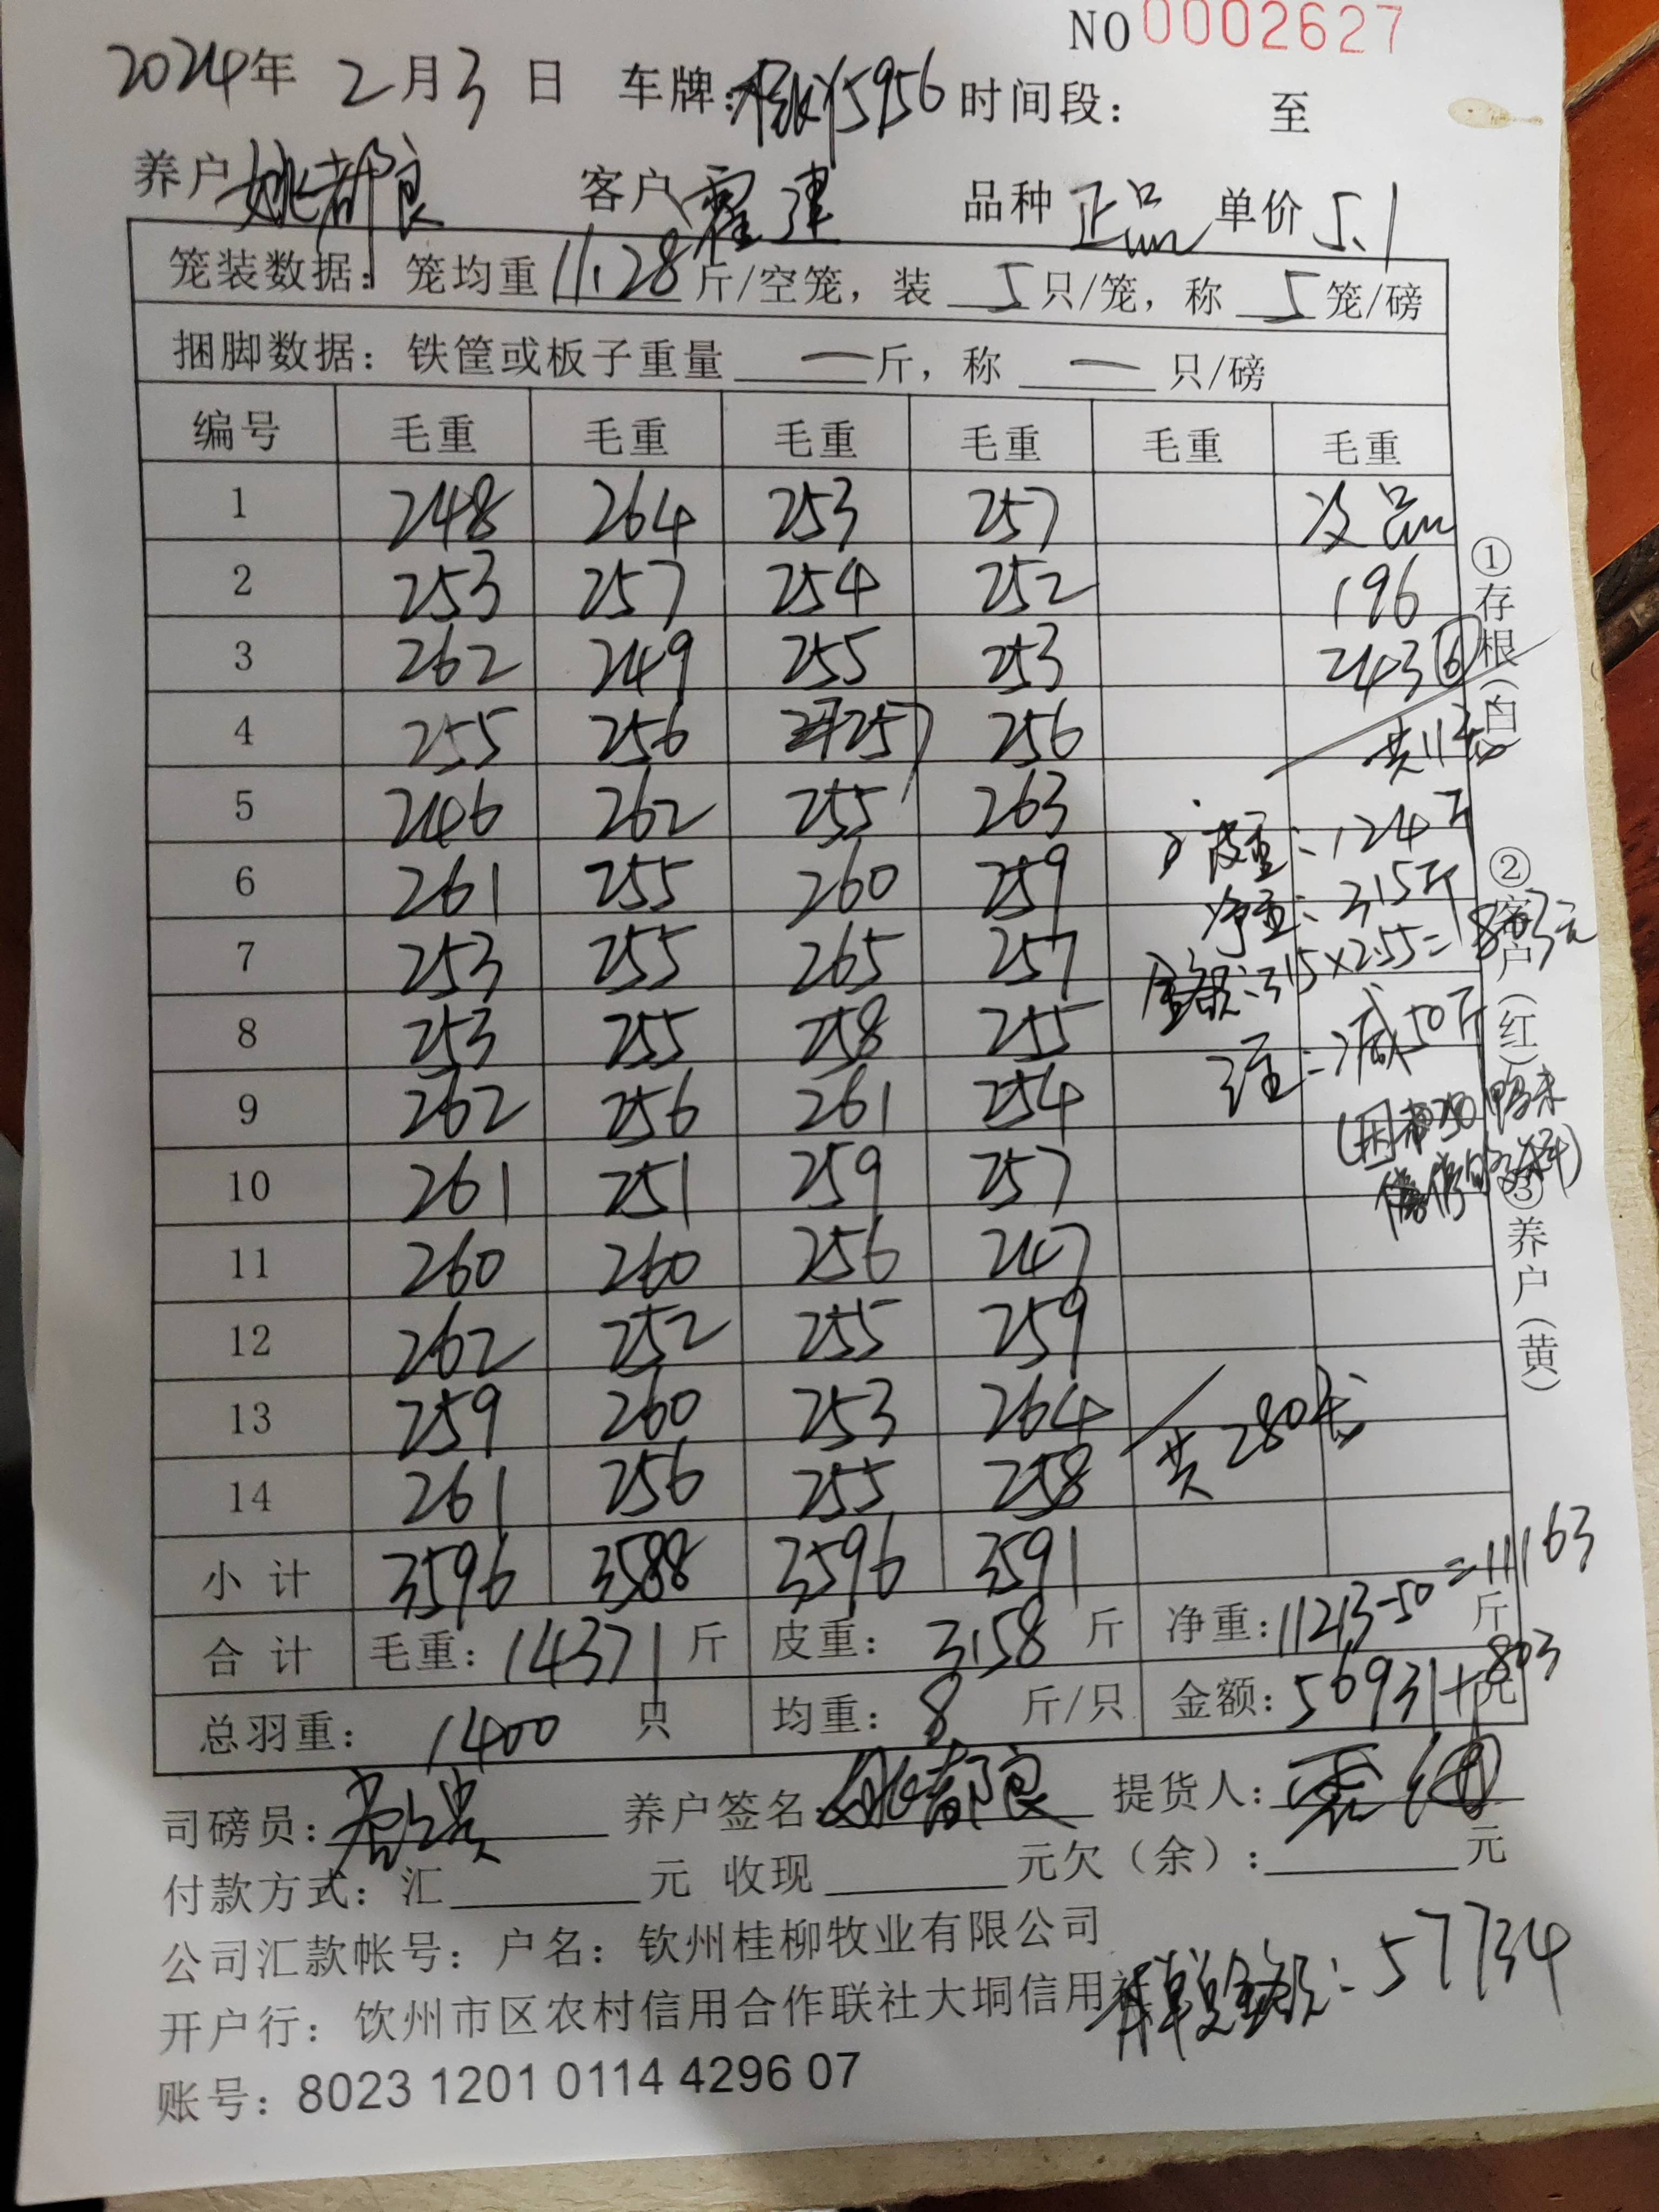 NO 0002627
2024年 2月3日 车牌: 桂KY5956 时间段: 至
养户 姚都良 客户 霍建 品种 正品 单价 5.1
笼装数据: 笼均重 11.28 斤/空笼, 装 5 只/笼, 称 5 笼/磅
捆脚数据: 铁筐或板子重量 一 斤, 称 一 只/磅
编号 毛重 毛重 毛重 毛重 毛重 毛重
1 248 264 253 257 次品
2 253 257 254 252 196
3 262 249 255 253 243 ⑥
4 255 256 257 256 共11笼
5 246 262 255 263
皮重: 124斤
6 261 255 260 259
净重: 315斤
7 253 255 265 257
金额: 315×2.55=803元
8 253 255 258 255
注: 减50斤
9 262 256 261 254
10 261 251 259 257
11 260 260 256 247
12 262 252 255 259
13 259 260 253 264
共280笼
14 261 256 255 258
小计 3596 3588 3596 3591
合计 毛重: 14371 斤 皮重: 3158 斤 净重: 11213-50=11163 斤
总羽重: 1400 只 均重: 8 斤/只 金额: 56931+803 元
司磅员: 养户签名: 姚都良 提货人:
付款方式: 汇 元 收现 元欠(余): 元
公司汇款帐号: 户名: 钦州桂柳牧业有限公司
开户行: 钦州市区农村信用合作联社大垌信用社
单总金额: 57734
账号: 8023 1201 0114 4296 07
①存根(白) ②客户(红) ③养户(黄)